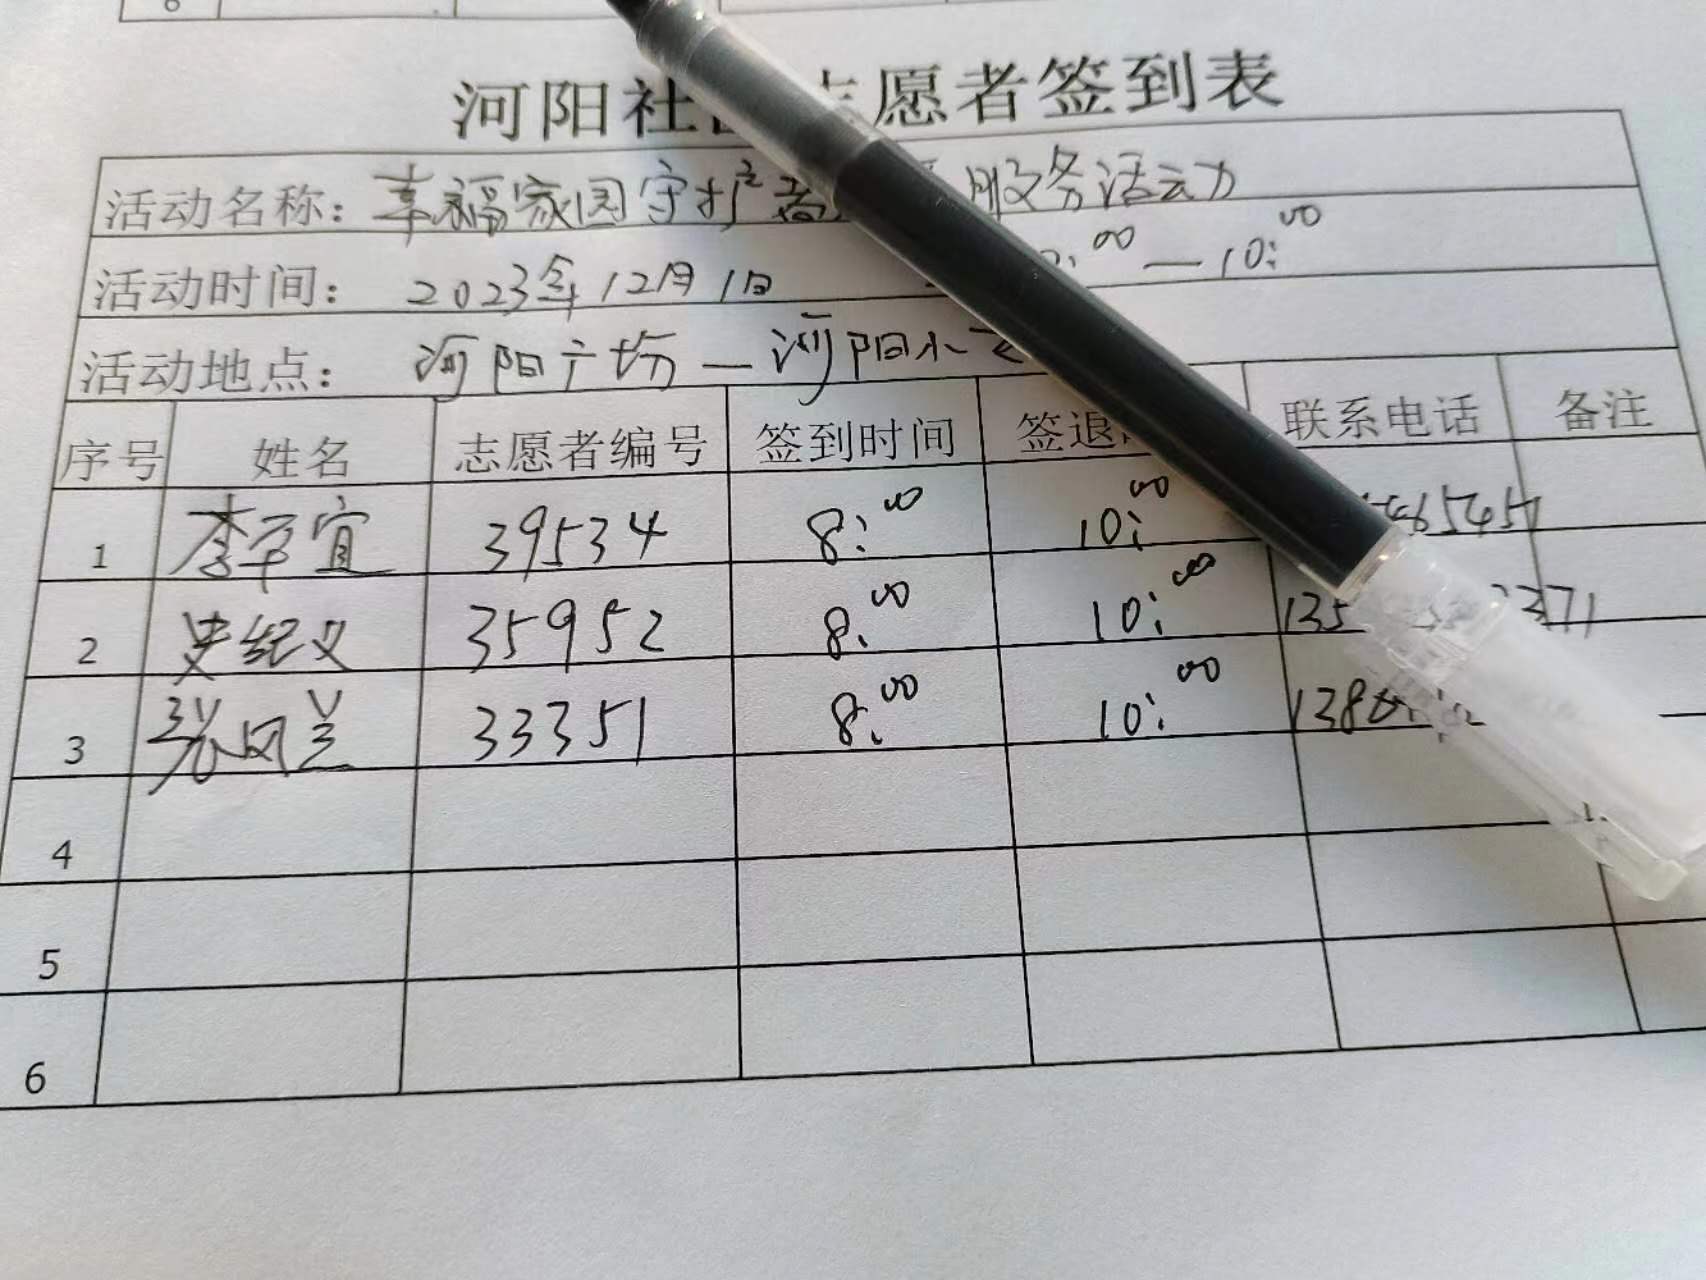 河阳社 志愿者签到表
活动名称: 幸福家园守护者 服务活动
活动时间: 2023年12月1日 :00—10:00
活动地点: 河阳广场—河阳小
序号 姓名 志愿者编号 签到时间 签退 联系电话 备注
1 李平宜 39534 8:00 10:00
2 史纪义 35952 8:00 10:00 135 2371
3 张凤兰 33351 8:00 10:00 138
4
5
6